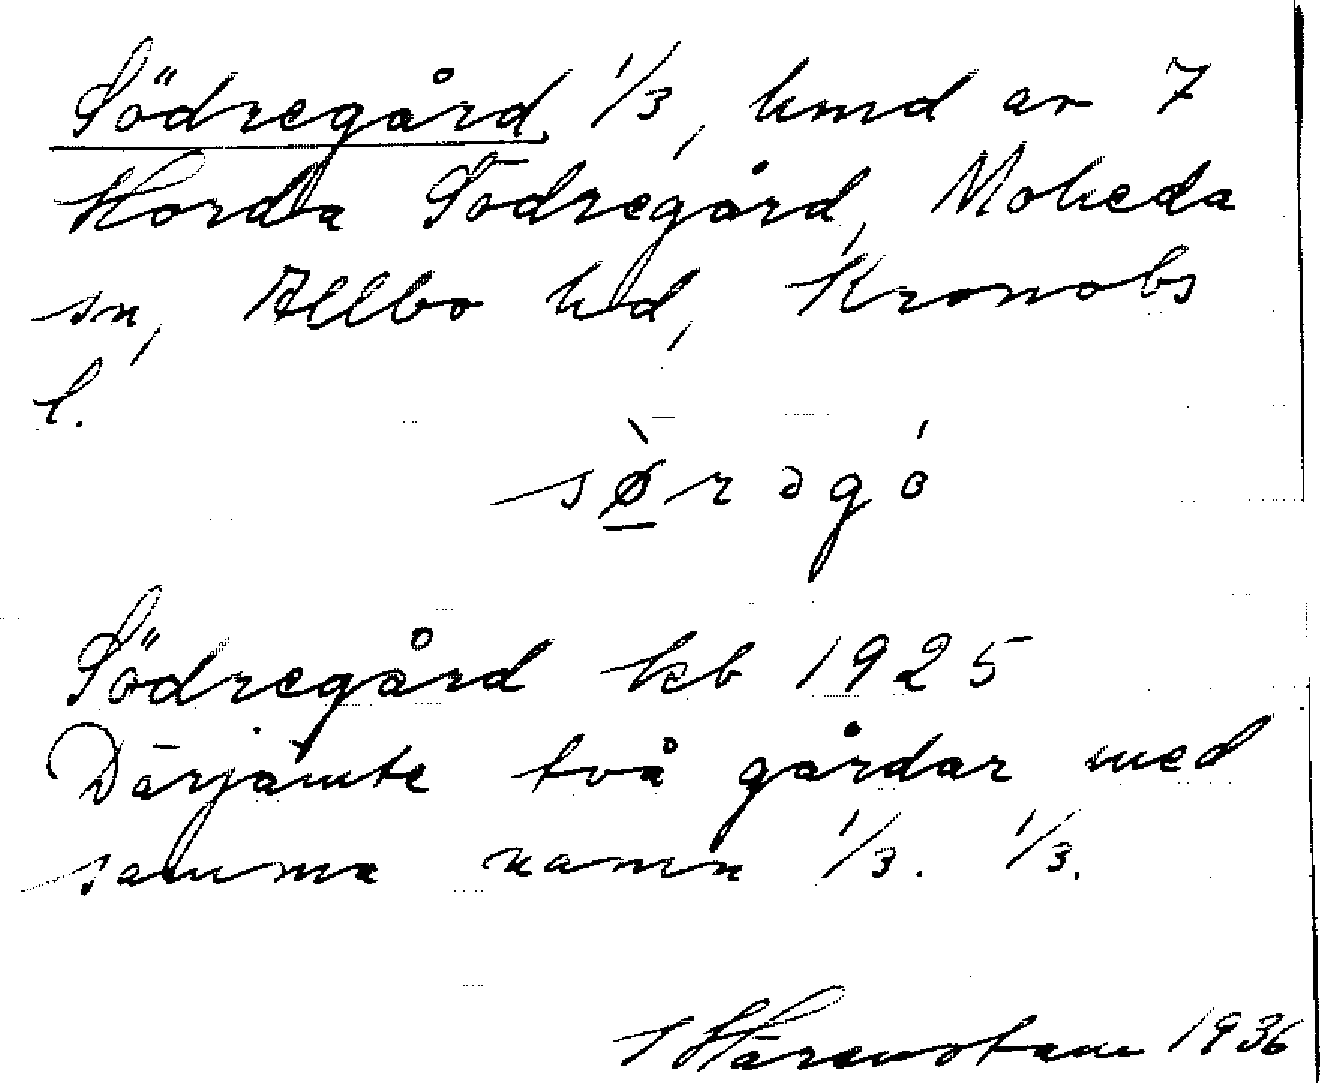 Södregård 1/3, hmd av 7
Horda Södregård, Moheda
sn, Allbo hd, Kronobs
l.
sø̀rəgó
Södregård kb 1925
Därjämte två gårdar med
samma namn 1/3. 1/3.
1936